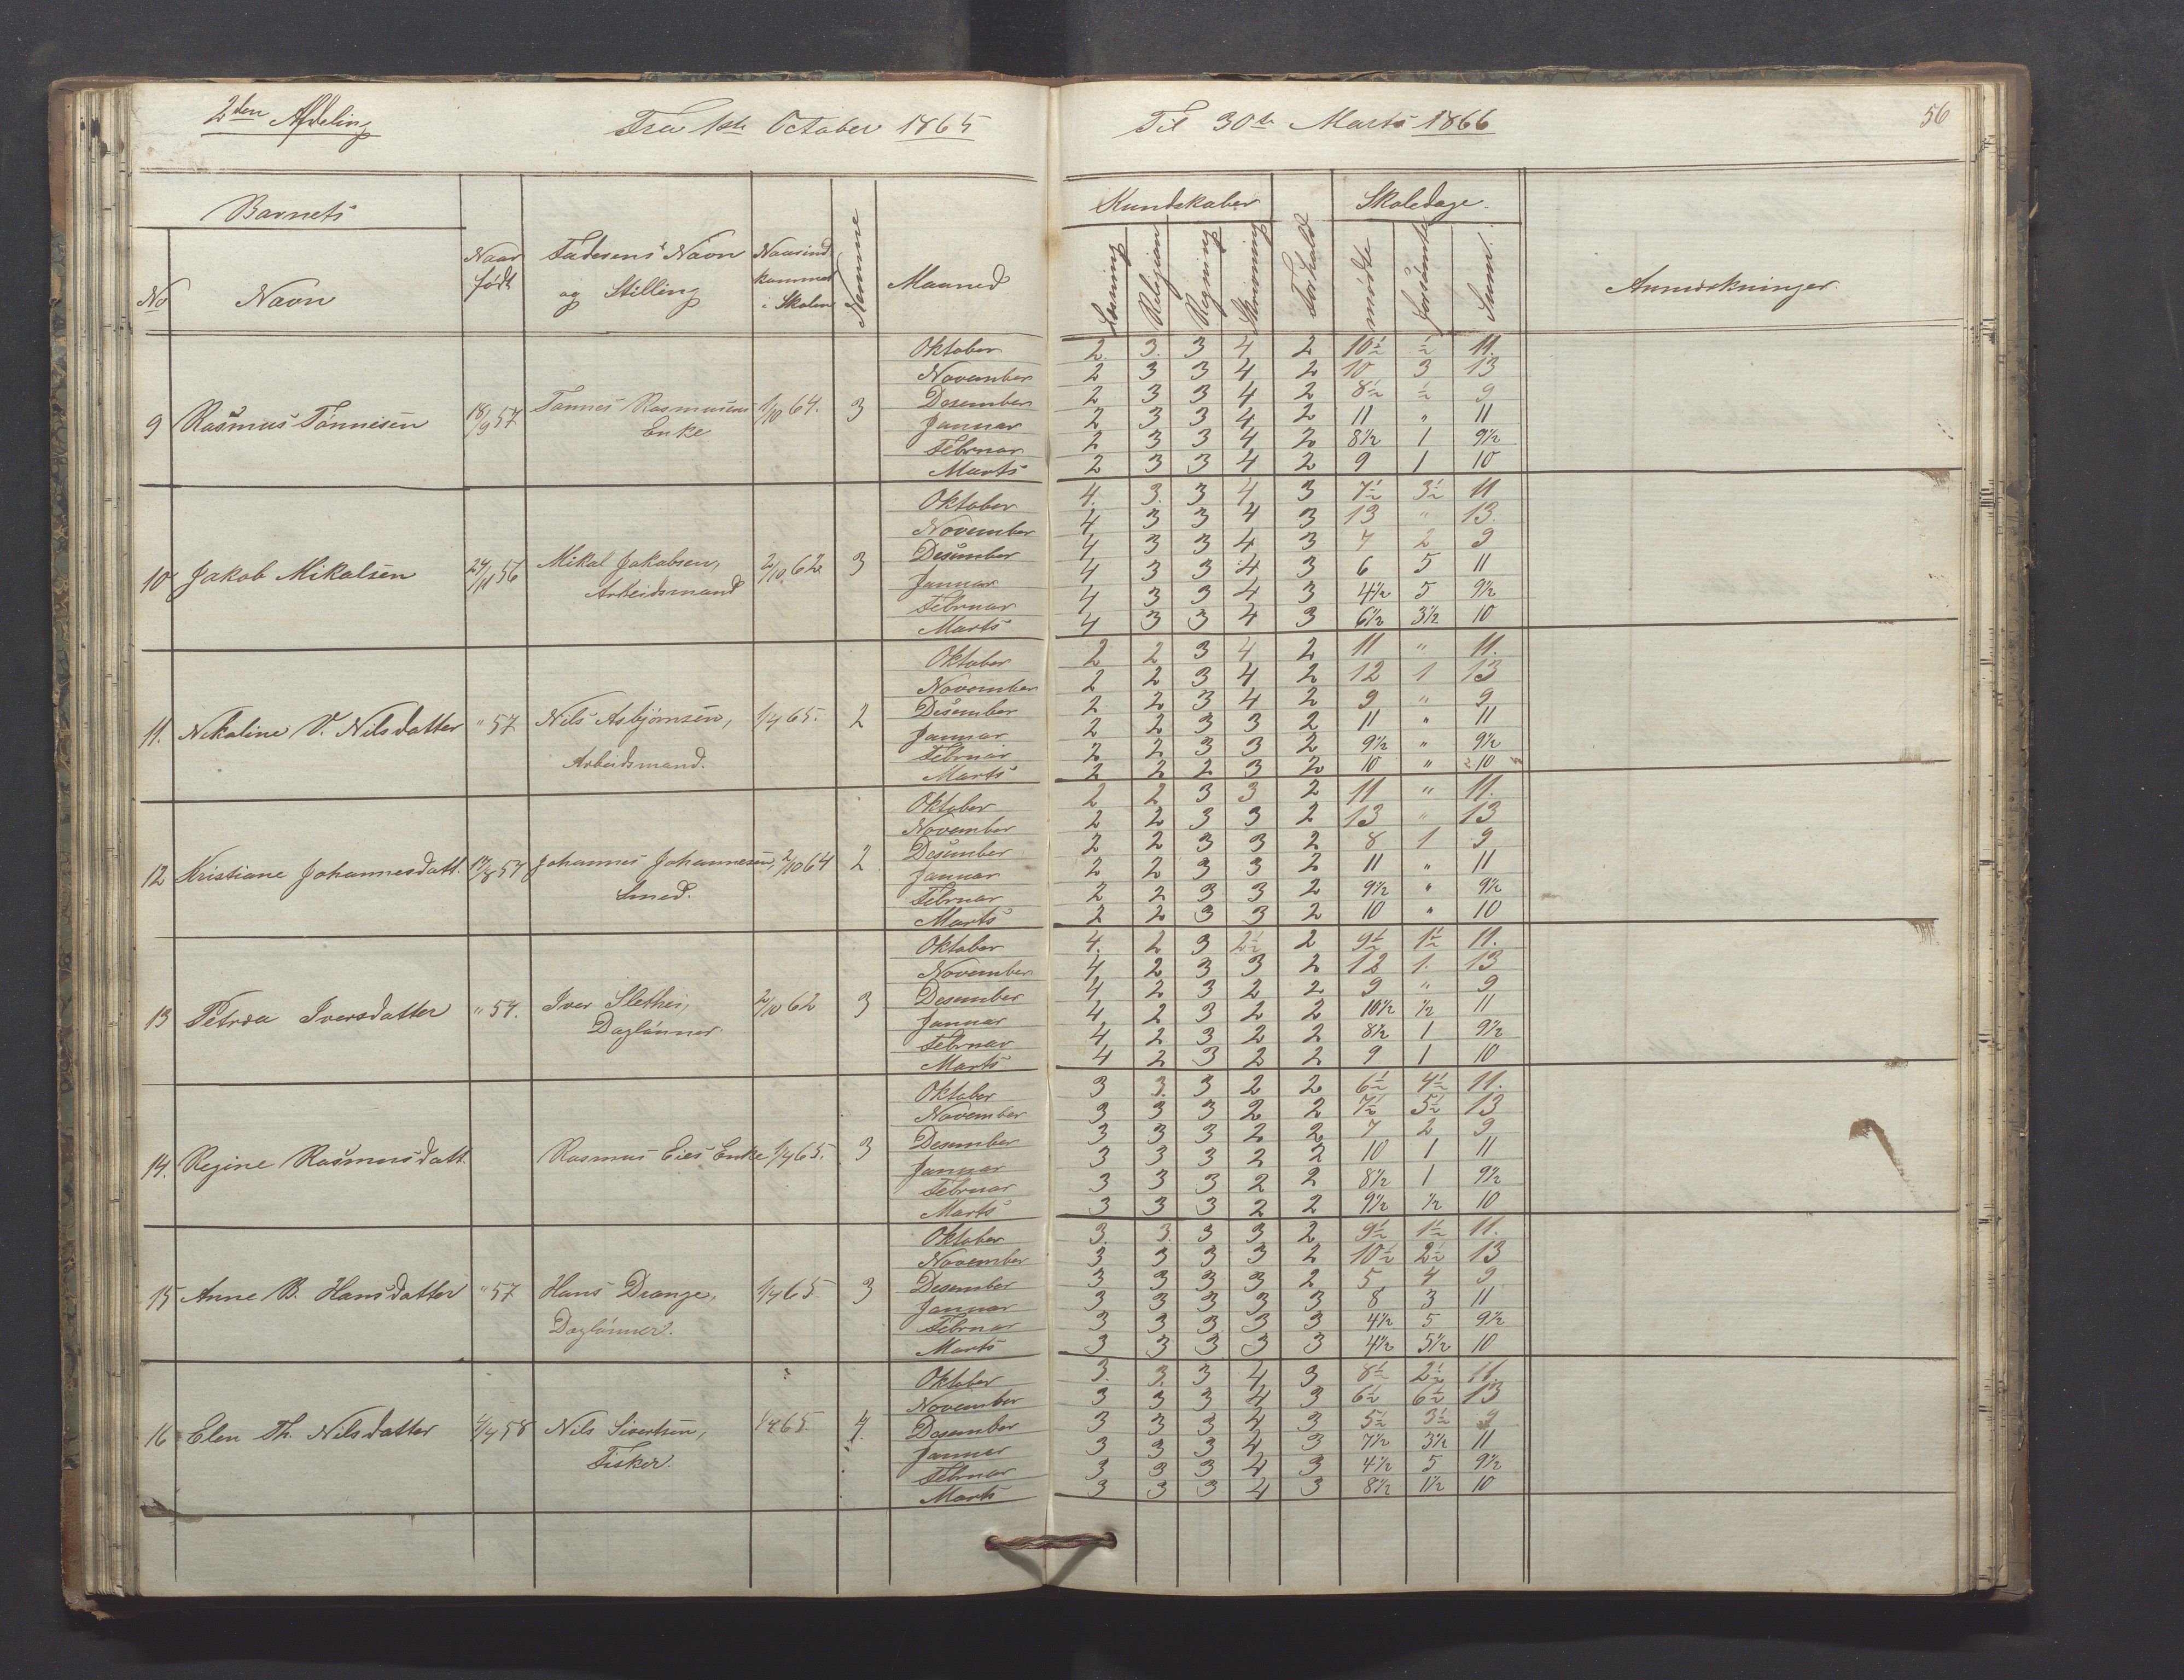 2den Afdeling
Fra 1ste October 1865
Til 30te Marts 1866
56
Barnets
No
Navn
Naar født
Faderens Navn og Stilling
Naar indkommet i Skolen
Nemme
Maaned
Kundskaber
Læsning
Religion
Regning
Skrivning
Forhold
Skoledage
mødte
forsømte
Sum
Anmærkninger.
9 Rasmus Tønnesen 18/9 57 Tønnes Rasmusens Enke 1/10 64. 3
Oktober 2. 3. 3 4 2 10½ ½ 11.
November 2 3 3 4 2 10 3 13
Desember 2 3 3 4 2 8½ ½ 9
Januar 2 3 3 4 2 11 " 11
Februar 2 3 3 4 2 8½ 1 9½
Marts 2 3 3 4 2 9 1 10
10 Jakob Mikalsen 24/11 56 Mikal Jakobsen, Arbeidsmand 2/10 62 3
Oktober 4. 3. 3 4 3 7½ 3½ 11
November 4 3 3 4 3 13 " 13.
Desember 4 3 3 4 3 7 2 9
Januar 4 3 3 4 3 6 5 11
Februar 4 3 3 4 3 4½ 5 9½
Marts 4 3 3 4 3 6½ 3½ 10
11. Nikoline V. Nilsdatter " 57 Nils Asbjørnsen, Arbeidsmand. 1/4 65. 2
Oktober 2 2 3 4 2 11 " 11.
November 2 2 3 4 2 12 1 13
Desember 2 2 3 4 2 9 " 9
Januar 2 2 3 3 2 11 " 11
Februar 2 2 3 3 2 9½ " 9½
Marts 2 2 2 3 2 10 " 10
12 Kristiane Johannesdatt. 17/8 57 Johannes Johannesen, Smed. 2/10 64 2
Oktober 2 2 3 3 2 11 " 11.
November 2 2 3 3 2 13 " 13
Desember 2 2 3 3 2 8 1 9
Januar 2 2 3 3 2 11 " 11
Februar 2 2 3 3 2 9½ " 9½
Marts 2 2 3 3 2 10 " 10
13 Petrea Iversdatter " 57. Iver Slethei, Daglønner 2/10 62 3
Oktober 4. 2 3 2½ 2 9½ 1½ 11.
November 4 2 3 3 2 12 1. 13
Desember 4 2 3 2 2 9 " 9
Januar 4 2 3 2 2 10½ ½ 11
Februar 4 2 3 2 2 8½ 1 9½
Marts 4 2 3 2 2 9 1 10
14. Regine Rasmusdatt. Rasmus Eies Enke 1/4 65. 3
Oktober 3 3. 3 2 2 6½ 4½ 11.
November 3 3 3 2 2 7½ 5½ 13
Desember 3 3 3 2 2 7 2 9
Januar 3 3 3 2 2 10 1 11
Februar 3 3 3 2 2 8½ 1 9½
Marts 3 3 3 2 2 9½ ½ 10
15 Anne B. Hansdatter " 57 Hans Drange, Daglønner. 1/4 65 3
Oktober 3. 3. 3 3 2 9½ 1½ 11.
November 3 3 3 3 2 10½ 2½ 13
Desember 3 3 3 3 2 5 4 9
Januar 3 3 3 3 3 8 3 11
Februar 3 3 3 3 3 4½ 5 9½
Marts 3 3 3 3 3 4½ 5½ 10
16 Elen Th. Nilsdatter 4/4 58 Nils Sivertsen, Fisker. 1/4 65 4.
Oktober 3. 3. 3 4 3 8½ 2½ 11.
November 3 3 3 4 3 6½ 6½ 13
Desember 3 3 3 4 3 5½ 3½ 9
Januar 3 3 3 4 3 7½ 3½ 11
Februar 3 3 3 4 3 4½ 5 9½
Marts 3 3 3 4 3 8½ 1½ 10